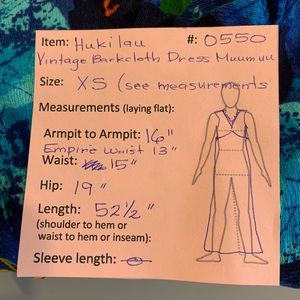 Item: Hukilau #: 0550
Vintage Barkcloth Dress Muumuu
Size: XS (see measurements
Measurements (laying flat):
Armpit to Armpit: 16"
Empire waist 13"
Waist: 15"
Hip: 19"
Length: 52½"
(shoulder to hem or
waist to hem or inseam):
Sleeve length: